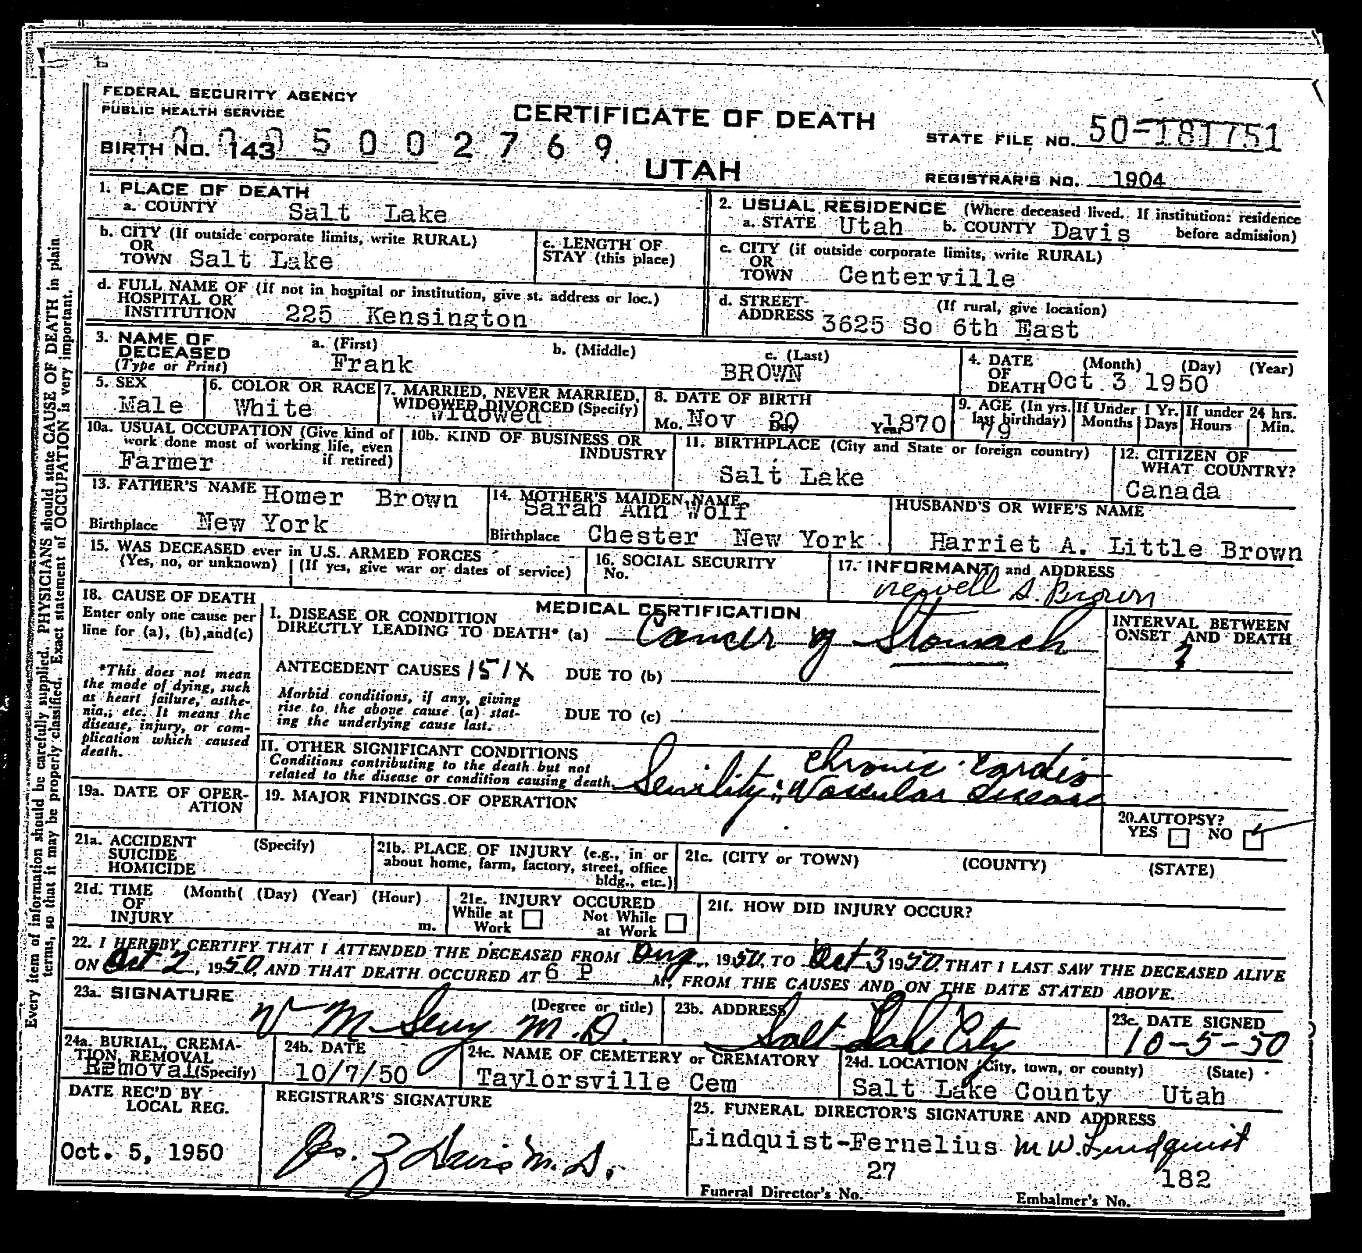 FEDERAL SECURITY AGENCY
PUBLIC HEALTH SERVICE
CERTIFICATE OF DEATH
UTAH
BIRTH NO. 143 0005002769
STATE FILE NO. 50-181751
REGISTRAR'S NO. 1904
1. PLACE OF DEATH
a. COUNTY Salt Lake
b. CITY (If outside corporate limits, write RURAL)
OR
TOWN Salt Lake
c. LENGTH OF
STAY (this place)
d. FULL NAME OF (If not in hospital or institution, give st. address or loc.)
HOSPITAL OR
INSTITUTION 225 Kensington
2. USUAL RESIDENCE (Where deceased lived. If institution: residence
a. STATE Utah b. COUNTY Davis before admission)
c. CITY (if outside corporate limits, write RURAL)
OR
TOWN Centerville
d. STREET- (If rural, give location)
ADDRESS 3625 So 6th East
3. NAME OF DECEASED (Type or Print)
a. (First) Frank
b. (Middle)
c. (Last) BROWN
4. DATE OF DEATH (Month) (Day) (Year)
Oct 3 1950
5. SEX
Male
6. COLOR OR RACE
White
7. MARRIED, NEVER MARRIED,
WIDOWED DIVORCED (Specify)
Widowed
8. DATE OF BIRTH
Mo. Nov Day 20 Year 1870
9. AGE (In yrs. last birthday)
79
If Under 1 Yr.
Months Days
If under 24 hrs.
Hours Min.
10a. USUAL OCCUPATION (Give kind of
work done most of working life, even
if retired)
Farmer
10b. KIND OF BUSINESS OR
INDUSTRY
11. BIRTHPLACE (City and State or foreign country)
Salt Lake
12. CITIZEN OF
WHAT COUNTRY?
Canada
13. FATHER'S NAME Homer Brown
Birthplace New York
14. MOTHER'S MAIDEN NAME
Sarah Ann Wolf
Birthplace Chester New York
HUSBAND'S OR WIFE'S NAME
Harriet A. Little Brown
15. WAS DECEASED ever in U.S. ARMED FORCES
(Yes, no, or unknown) (If yes, give war or dates of service)
16. SOCIAL SECURITY
No.
17. INFORMANT and ADDRESS
Newell S. Brown
18. CAUSE OF DEATH
Enter only one cause per
line for (a), (b), and (c)
*This does not mean
the mode of dying, such
as heart failure, asthe-
nia,; etc. It means the
disease, injury, or com-
plication which caused
death.
MEDICAL CERTIFICATION
I. DISEASE OR CONDITION
DIRECTLY LEADING TO DEATH* (a) Cancer of Stomach
ANTECEDENT CAUSES 151X DUE TO (b)
Morbid conditions, if any, giving
rise to the above cause (a) stat-
ing the underlying cause last.
DUE TO (c)
INTERVAL BETWEEN
ONSET AND DEATH
?
II. OTHER SIGNIFICANT CONDITIONS
Conditions contributing to the death but not
related to the disease or condition causing death.
Senility; Chronic Cardio
Vascular disease
19a. DATE OF OPER-
ATION
19. MAJOR FINDINGS OF OPERATION
20. AUTOPSY?
YES NO
21a. ACCIDENT
SUICIDE
HOMICIDE
(Specify)
21b. PLACE OF INJURY (e.g., in or
about home, farm, factory, street, office
bldg., etc.)
21c. (CITY or TOWN) (COUNTY) (STATE)
21d. TIME (Month( (Day) (Year) (Hour)
OF
INJURY m.
21e. INJURY OCCURED
While at Work
Not While at Work
21f. HOW DID INJURY OCCUR?
22. I HEREBY CERTIFY THAT I ATTENDED THE DECEASED FROM Aug, 1950, TO Oct 3 1950 THAT I LAST SAW THE DECEASED ALIVE
ON Oct 2, 1950, AND THAT DEATH OCCURED AT 6 P M, FROM THE CAUSES AND ON THE DATE STATED ABOVE.
23a. SIGNATURE (Degree or title)
M.D.
23b. ADDRESS
Salt Lake City
23c. DATE SIGNED
10-5-50
24a. BURIAL, CREMA-
TION, REMOVAL
Removal (Specify)
24b. DATE
10/7/50
24c. NAME OF CEMETERY or CREMATORY
Taylorsville Cem
24d. LOCATION (City, town, or county) (State)
Salt Lake County Utah
DATE REC'D BY
LOCAL REG.
Oct. 5, 1950
REGISTRAR'S SIGNATURE
Jos. Z Davis M.D.
25. FUNERAL DIRECTOR'S SIGNATURE AND ADDRESS
Lindquist-Fernelius M W. Lindquist
27
182
Funeral Director's No.
Embalmer's No.
Every item of information should be carefully supplied. PHYSICIANS should state CAUSE OF DEATH in plain
terms, so that it may be properly classified. Exact statement of OCCUPATION is very important.